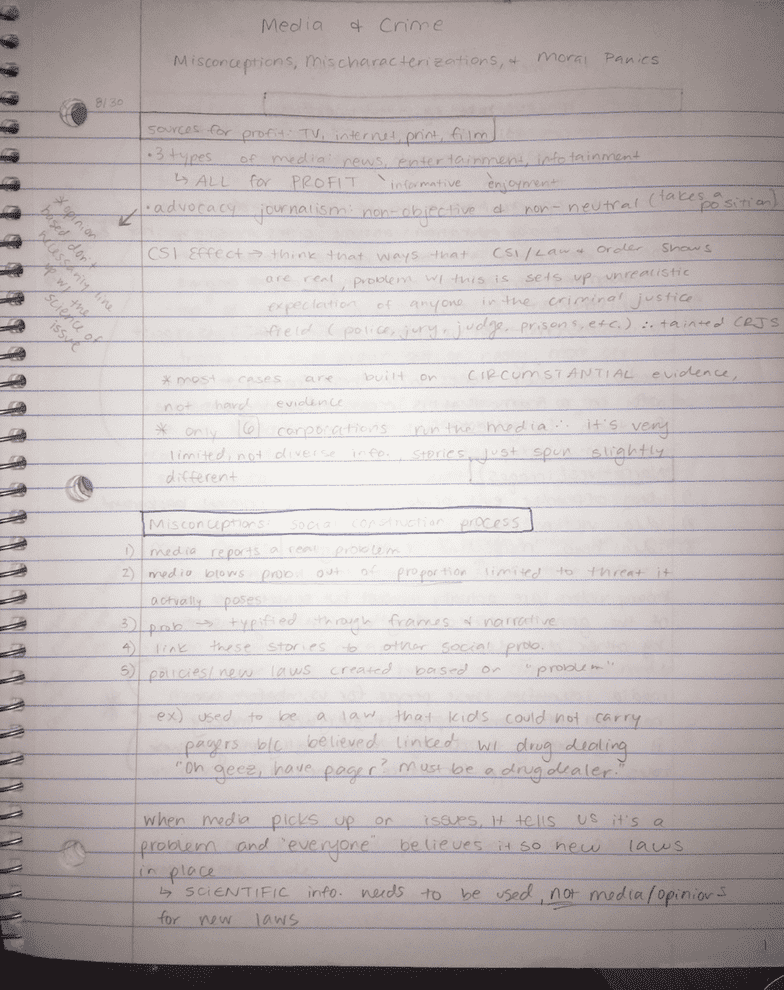 Media & Crime
Misconceptions, Mischaracterizations, & Moral Panics
8/30
sources for profit: TV, internet, print, film
• 3 types of media: news, entertainment, infotainment
↳ ALL for PROFIT informative enjoyment
• advocacy journalism: non-objective & non-neutral (takes a position)
*opinion
based don't
necessarily line
up w/ the
science of
issue
CSI Effect → think that ways that CSI/Law & Order shows
are real, problem w/ this is sets up unrealistic
expectation of anyone in the criminal justice
field (police, jury, judge, prisons, etc.) ∴ tainted CRJS
*most cases are built on CIRCUMSTANTIAL evidence,
not hard evidence
* only 6 corporations run the media ∴ it's very
limited, not diverse info. stories, just spun slightly
different
Misconceptions: social construction process
1) media reports a real problem
2) media blows prob out of proportion limited to threat it
actually poses
3) prob → typified through frames & narrative
4) link these stories to other social prob.
5) policies/new laws created based on "problem"
ex) used to be a law that kids could not carry
pagers b/c believed linked w/ drug dealing
"Oh geez, have pager? Must be a drug dealer."
when media picks up on issues, it tells us it's a
problem and "everyone" believes it so new laws
in place
↳ SCIENTIFIC info. needs to be used, not media/opinions
for new laws
1